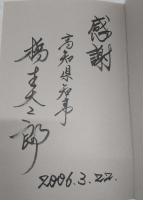 感謝
高知県知事
橋本大二郎
2006.3.22.